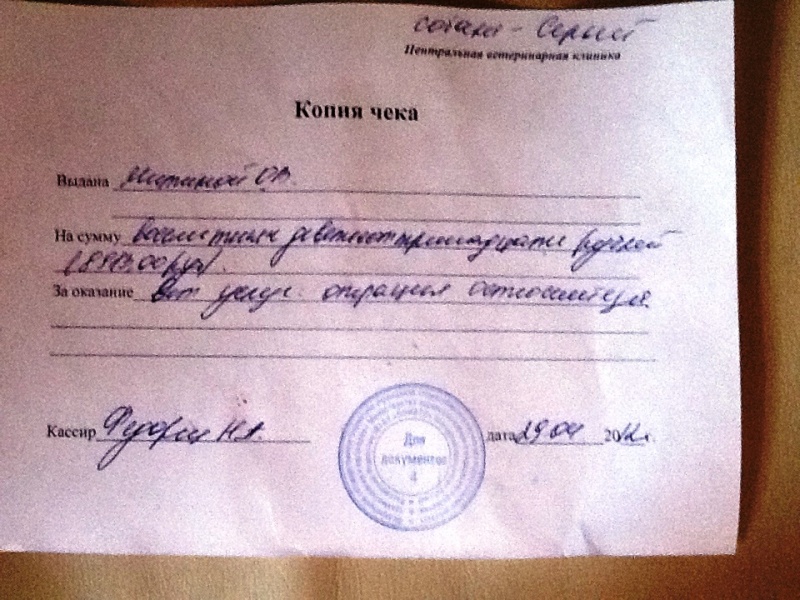 собака - Серый
Центральная ветеринарная клиника
Копия чека
Выдана О.В.
На сумму восемь тысяч девятьсот тринадцать рублей
(8913.00 руб.
За оказание вет услуг: операция остеосинтеза
Кассир Н.А.
Для
документов
4
дата 29 04 2012 г.